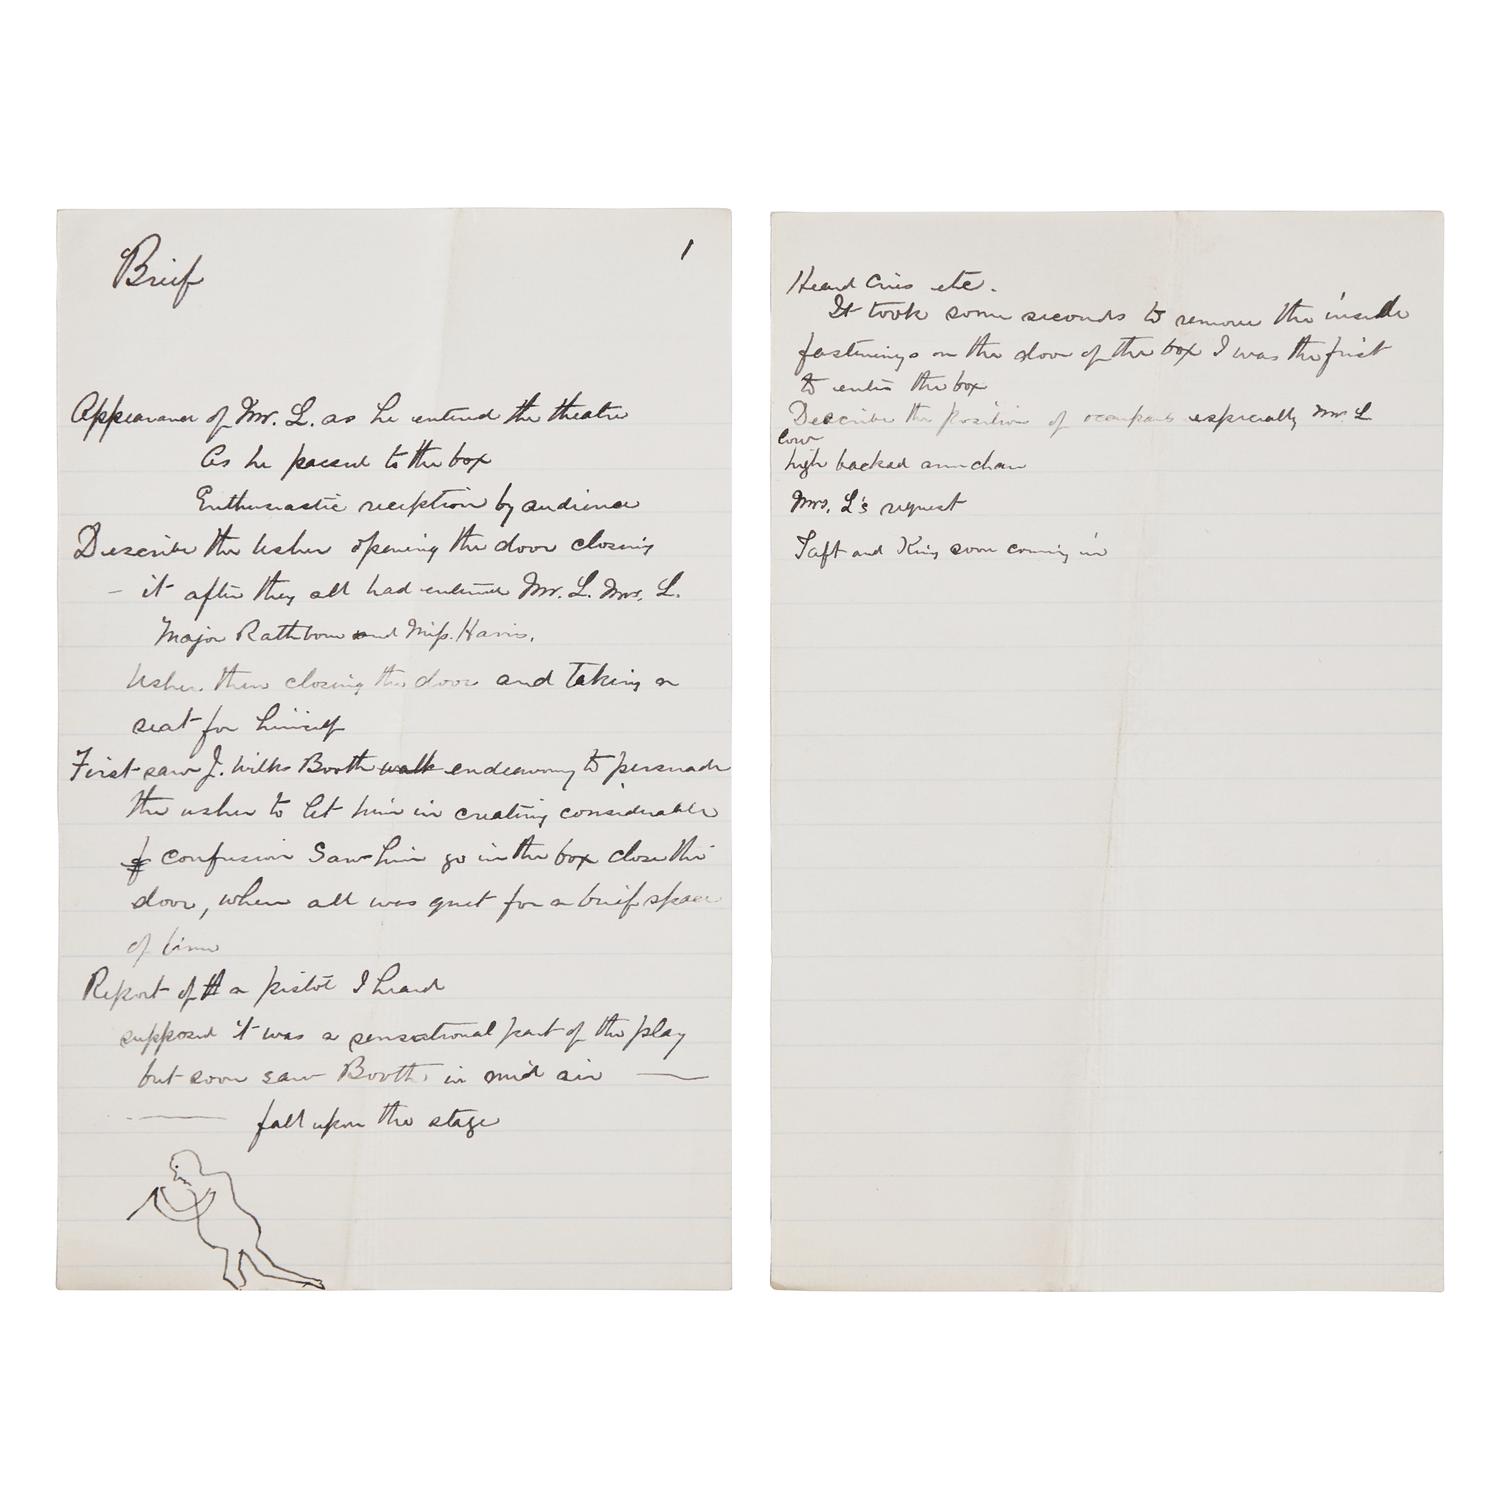 Brief
1
Appearance of Mr. L. as he entered the theatre
As he passed to the box
Enthusiastic reception by audience
Describe the Usher opening the door closing
– it after they all had entered Mr. L. Mrs. L.
Major Rathbone and Miss. Harris.
Usher then closing the door and taking a
seat for himself
First saw J. Wilks Booth walk endeavoring to persuade
the usher to let him in creating considerable
confusion Saw him go in the box close the
door, when all was quiet for a brief space
of time
Report of a pistol I heard
supposed it was a sensational part of the play
but soon saw Booth in mid air —
— fall upon the stage
Heard Cries etc.
It took some seconds to remove the inside
fastenings on the door of the box I was the first
to enter the box
Describe the position of occupants especially Mr L
low
high backed arm chair
Mrs. L's request
Taft and King soon coming in